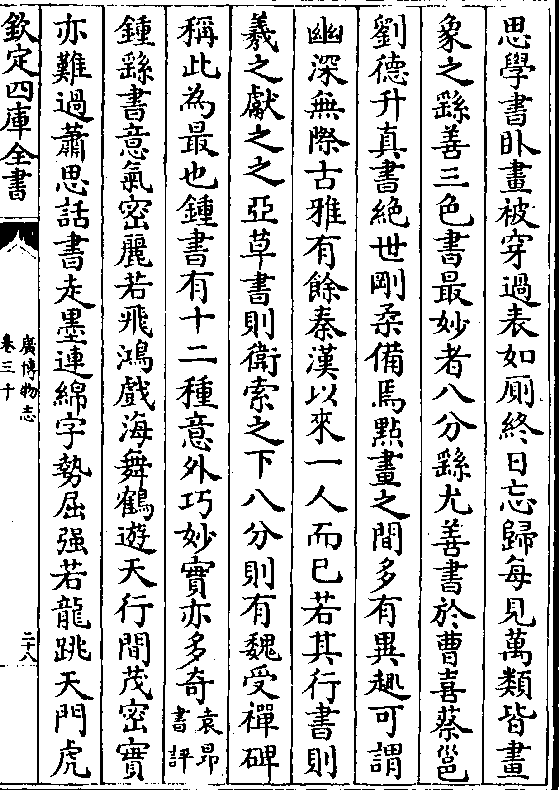 思學書卧畫被穿過表如厠終日忘歸每見萬類皆畫
象之繇善三色書最妙者八分繇尤善書於曹喜蔡邕
劉德升真書絶世剛柔備焉點畫之間多有異趣可謂
幽深無際古雅有餘秦漢以來一人而已若其行書則
羲之獻之之亞草書則衛索之下八分則有魏受禪碑
稱此為最也鍾書有十二種意外巧妙實亦多奇袁昻書評
鍾繇書意氣宻麗若飛鴻戲海舞鶴遊天行間茂宻實
亦難過蕭思話書走墨連綿字勢屈强若龍跳天門虎
欽定四庫全書
廣博物志
卷三十
二十八